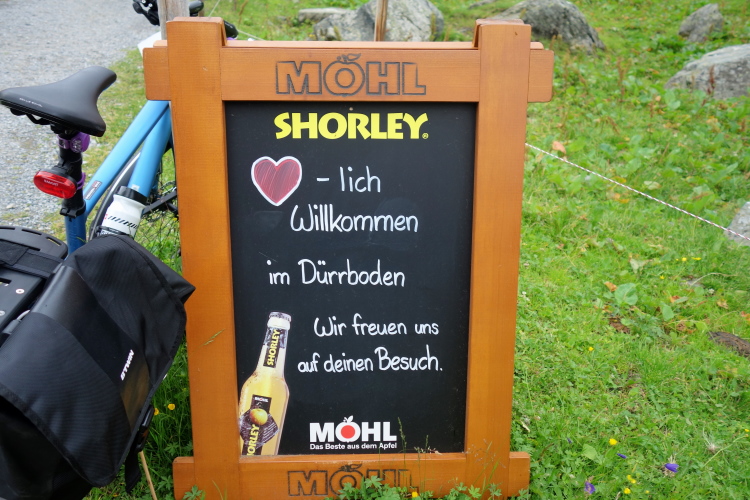 MÖHL
SHORLEY®
-lich
Willkommen
im Dürrboden
Wir freuen uns
auf deinen Besuch.
SHORLEY
SHORLEY
MÖHL
Das Beste aus dem Apfel
MÖHL